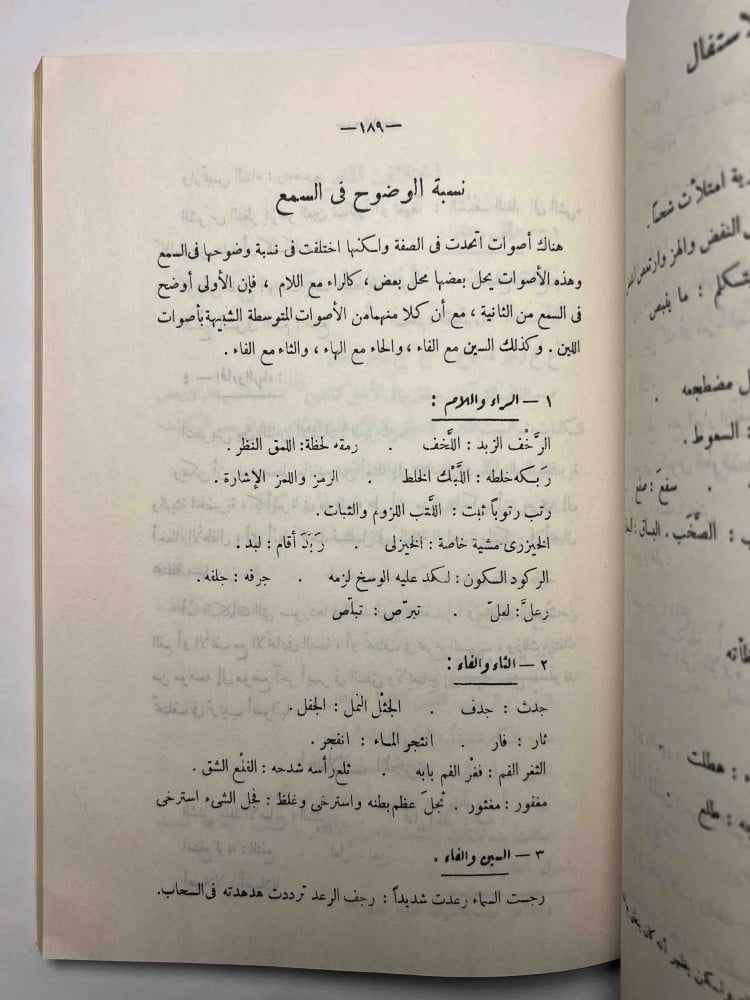 —١٨٩—
نسبة الوضوح فى السمع
هناك أصوات اتحدت فى الصفة ولكنها اختلفت فى نسبة وضوحها فى السمع
وهذه الأصوات يحل بعضها محل بعض ، كالراء مع اللام ، فإن الأولى أوضح
فى السمع من الثانية ، مع أن كلا منهما من الأصوات المتوسطة الشبيهة بأصوات
اللين . وكذلك السين مع الفاء ، والحاء مع الهاء ، والثاء مع الفاء .
١ — الراء واللام :
الرَّخْف الزبد : اللَّخف . رمقه لحظة : اللمق النظر .
رَبكه خلطه : اللَّبْك الخلط . الرمز واللمز الإشارة .
رتب رتوباً ثبت : اللَّتب اللزوم والثبات .
الخيزرى مشية خاصة : الخيزلى . رَبَدَ أقام : لبد .
الركود السكون : لكد عليه الوسخ لزمه . جرفه : جلفه .
رعلَّ : لعلّ . تبرّص : تبلّص
٢ — الثاء والفاء :
جدث : جدف . الجثْل النمل : الجفل .
ثار : فار . انثجر الماء : انفجر .
الثغر الفم : فغْر الفم بابه . ثلغ رأسه شدحه : الفلْع الشق .
مغفور : مغثور . ثجلَ عظم بطنه واسترخى وغلظ : فجل الشىء استرخى
٣ — السين والفاء .
رجست السماء رعدت شديداً : رجف الرعد ترددت هدهدته فى السحاب .
الاستفال
امتلأت شعباً .
النفض والهز وارتعص
: ما ينبص .
مضطجعه .
: السعوط .
. سفعَ : صفع
: الصَّخَب . البساق :
: هطلت
: طلع .